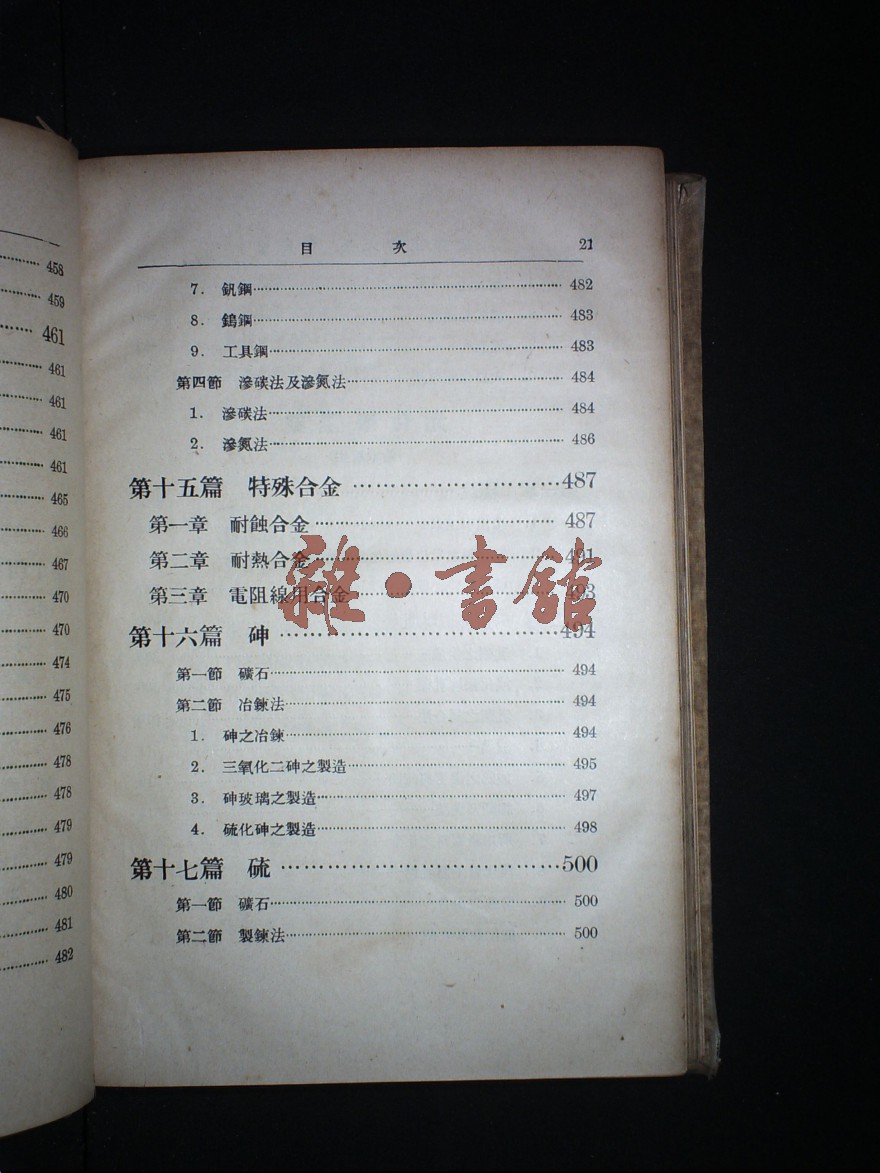 458
459
461
461
461
461
461
465
466
467
470
470
474
475
476
478
478
479
479
480
481
482
目 次 21
7. 釩鋼 482
8. 鎢鋼 483
9. 工具鋼 483
第四節 滲碳法及滲氮法 484
1. 滲碳法 484
2. 滲氮法 486
第十五篇 特殊合金 487
第一章 耐蝕合金 487
第二章 耐熱合金 491
第三章 電阻線用合金 493
第十六篇 砷 494
第一節 礦石 494
第二節 冶鍊法 494
1. 砷之冶鍊 494
2. 三氧化二砷之製造 495
3. 砷玻璃之製造 497
4. 硫化砷之製造 498
第十七篇 硫 500
第一節 礦石 500
第二節 製鍊法 500
雜·書館